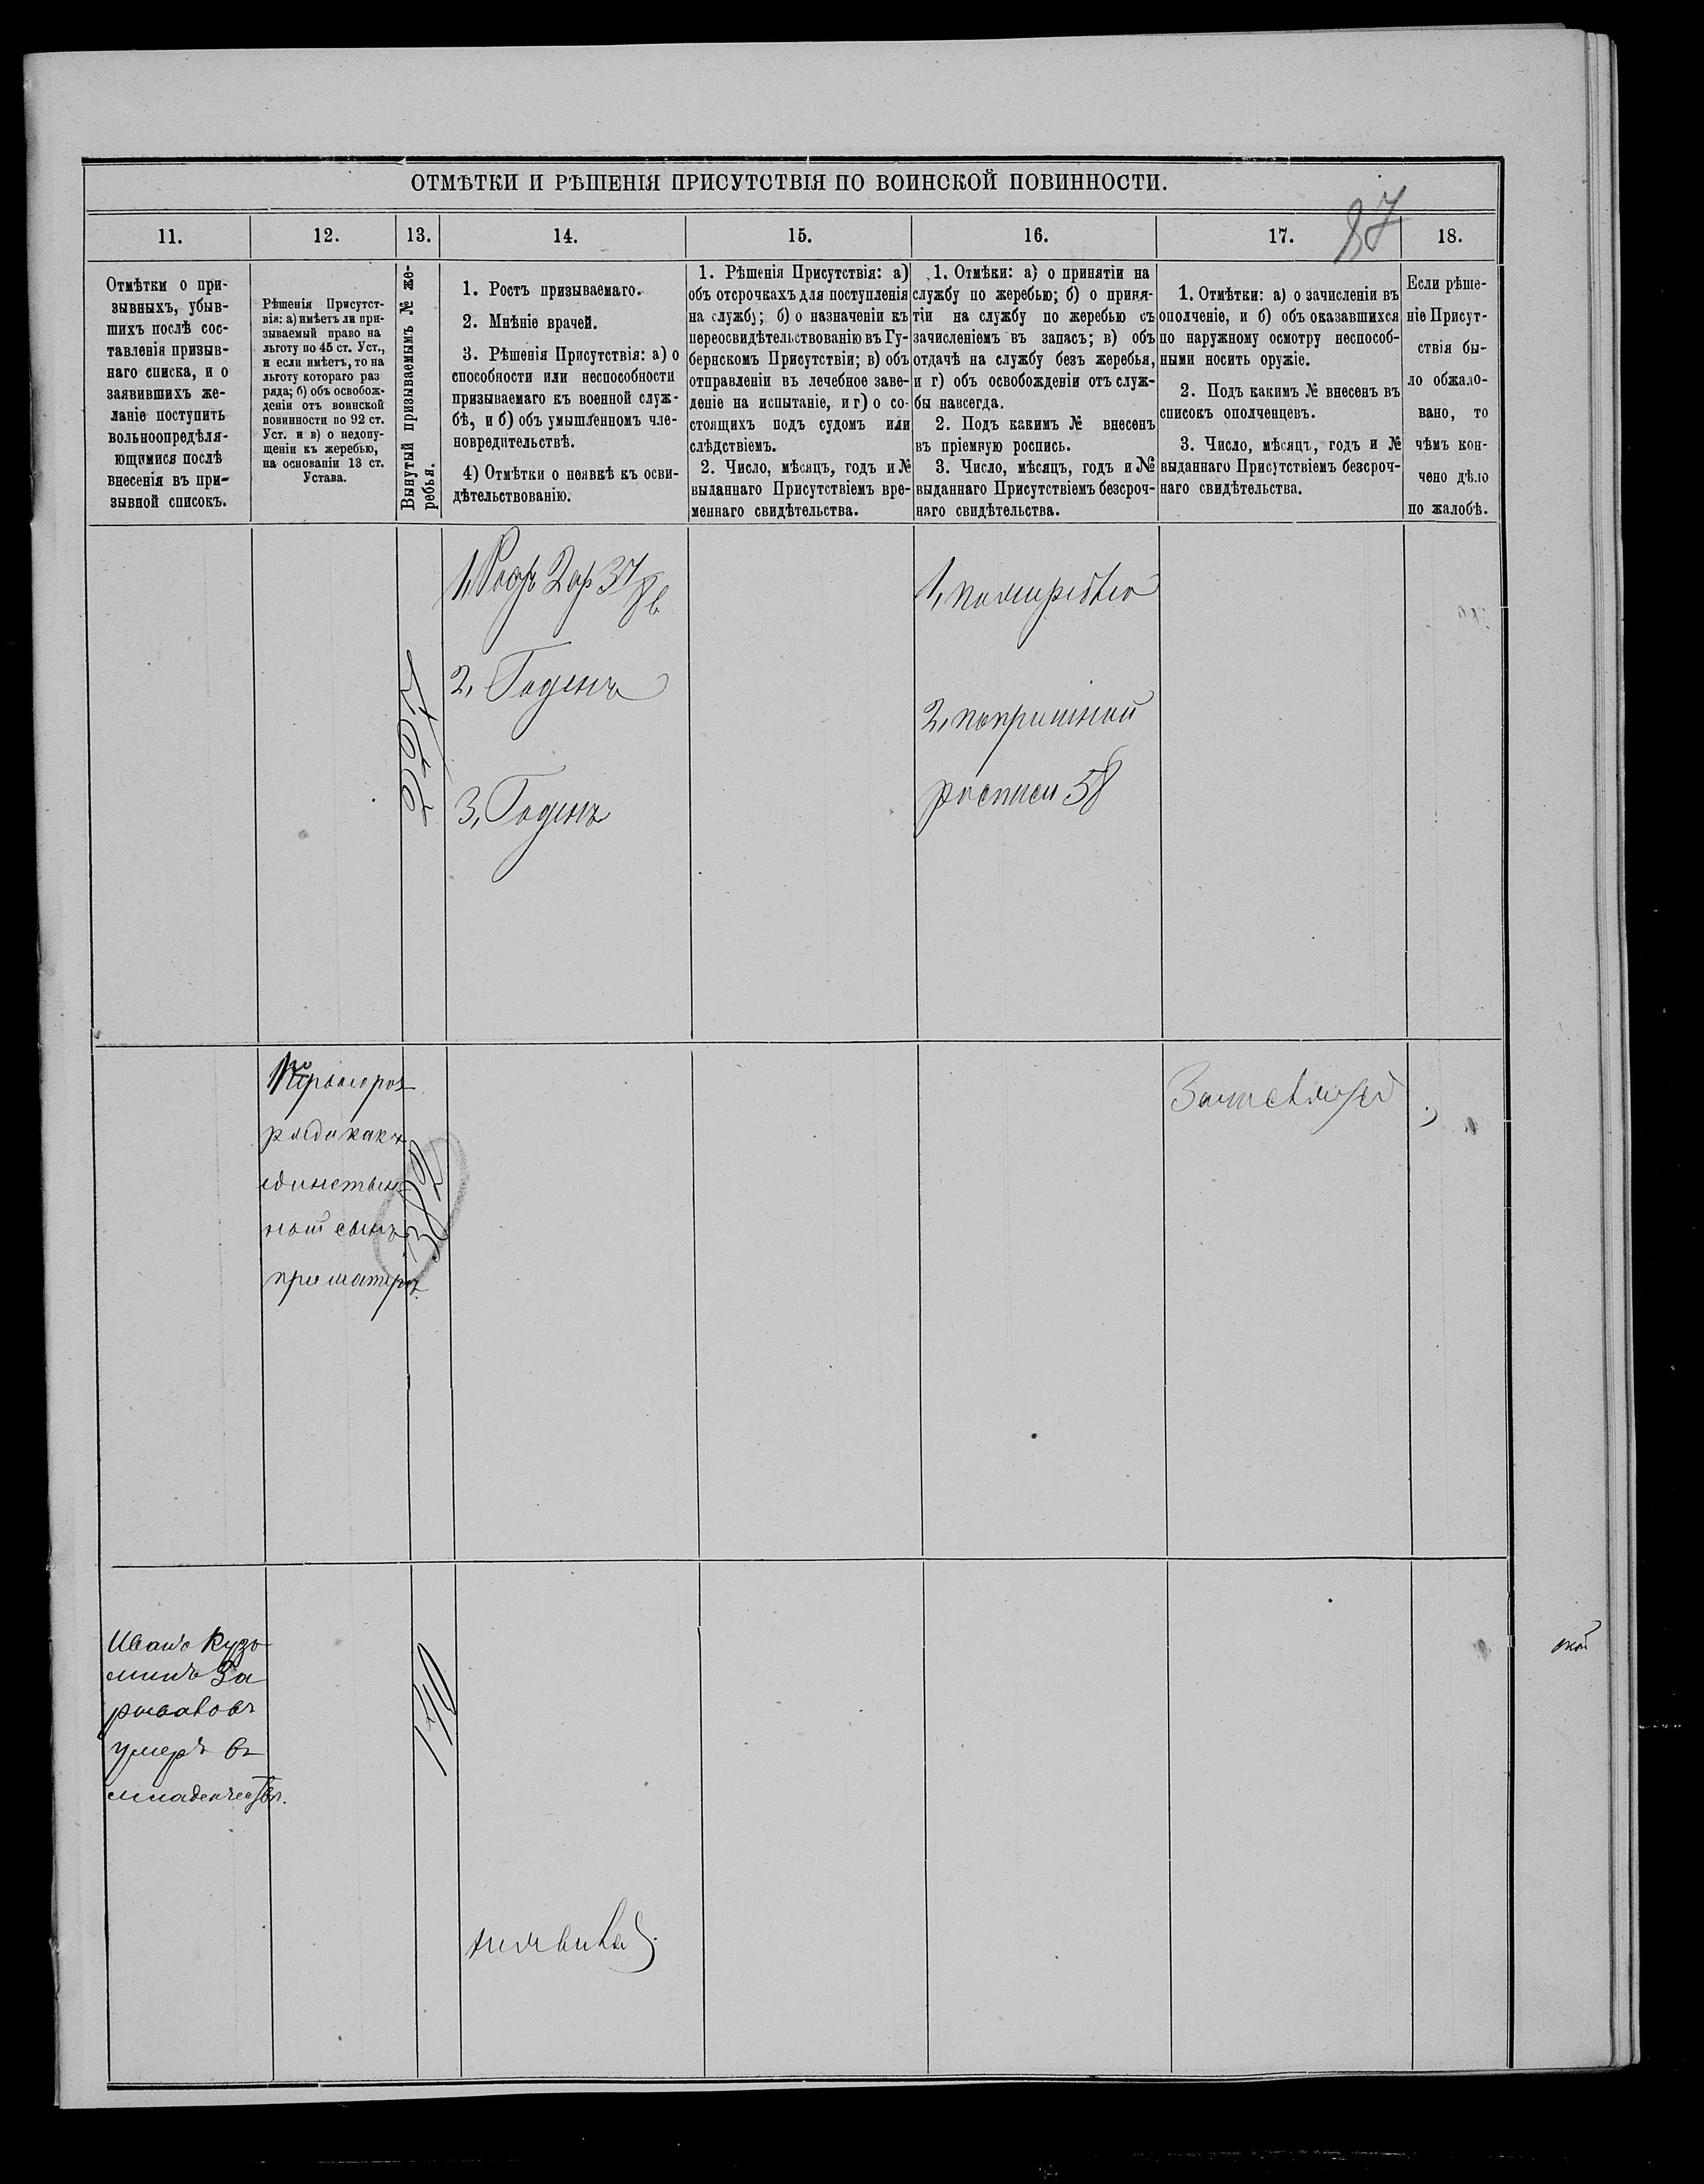 ОТМѢТКИ И РѢШЕНІЯ ПРИСУТСТВІЯ ПО ВОИНСКОЙ ПОВИННОСТИ.
87
11.
12.
13.
14.
15.
16.
17.
18.
Отмѣтки о при-
зывныхъ, убыв-
шихъ послѣ сос-
тавленія призыв-
наго списка, и о
заявившихъ же-
ланіе поступить
вольноопредѣля-
ющимися послѣ
внесенія въ при-
зывной списокъ.
Рѣшенія Присутст-
вія: а) имѣетъ ли при-
зываемый право на
льготу по 45 ст. Уст.,
и если имѣетъ, то на
льготу котораго раз
ряда; б) объ освобож-
деніи отъ воинской
повинности по 92 ст.
Уст. и в) о недопу-
щеніи къ жеребью,
на основаніи 13 ст.
Устава.
Вынутый призываемымъ № же-
ребья.
1. Ростъ призываемаго.
2. Мнѣніе врачей.
3. Рѣшенія Присутствія: а) о
способности или неспособности
призываемаго къ военной служ-
бѣ, и б) объ умышленномъ чле-
новредительствѣ.
4) Отмѣтки о неявкѣ къ осви-
дѣтельствованію.
1. Рѣшенія Присутствія: а)
объ отсрочкахъ для поступленія
на службу; б) о назначеніи къ
переосвидѣтельствованію въ Гу-
бернскомъ Присутствіи; в) объ
отправленіи въ лечебное заве-
деніе на испытаніе, и г) о со-
стоящихъ подъ судомъ или
слѣдствіемъ.
2. Число, мѣсяцъ, годъ и №
выданнаго Присутствіемъ вре-
меннаго свидѣтельства.
1. Отмѣки: а) о принятіи на
службу по жеребью; б) о приня-
тіи на службу по жеребью съ
зачисленіемъ въ запасъ; в) объ
отдачѣ на службу безъ жеребья,
и г) объ освобожденіи отъ служ-
бы навсегда.
2. Подъ какимъ № внесенъ
въ пріемную роспись.
3. Число, мѣсяцъ, годъ и №
выданнаго Присутствіемъ безсроч-
наго свидѣтельства.
1. Отмѣтки: а) о зачисленіи въ
ополченіе, и б) объ оказавшихся
по наружному осмотру неспособ-
ными носить оружіе.
2. Подъ какимъ № внесенъ въ
списокъ ополченцевъ.
3. Число, мѣсяцъ, годъ и №
выданнаго Присутствіемъ безсроч-
наго свидѣтельства.
Если рѣше-
ніе Присут-
ствія бы-
ло обжало-
вано, то
чѣмъ кон-
чено дѣло
по жалобѣ.
1, Ростъ 2 ар 3 7/8 в
2, Годенъ
3, Годенъ
2, по приемной
росписи 58
разряда какъ
единствен-
ный сынъ
при матери.
382
Иванъ Кузь
минъ За
умеръ въ
младенчествѣ.
170